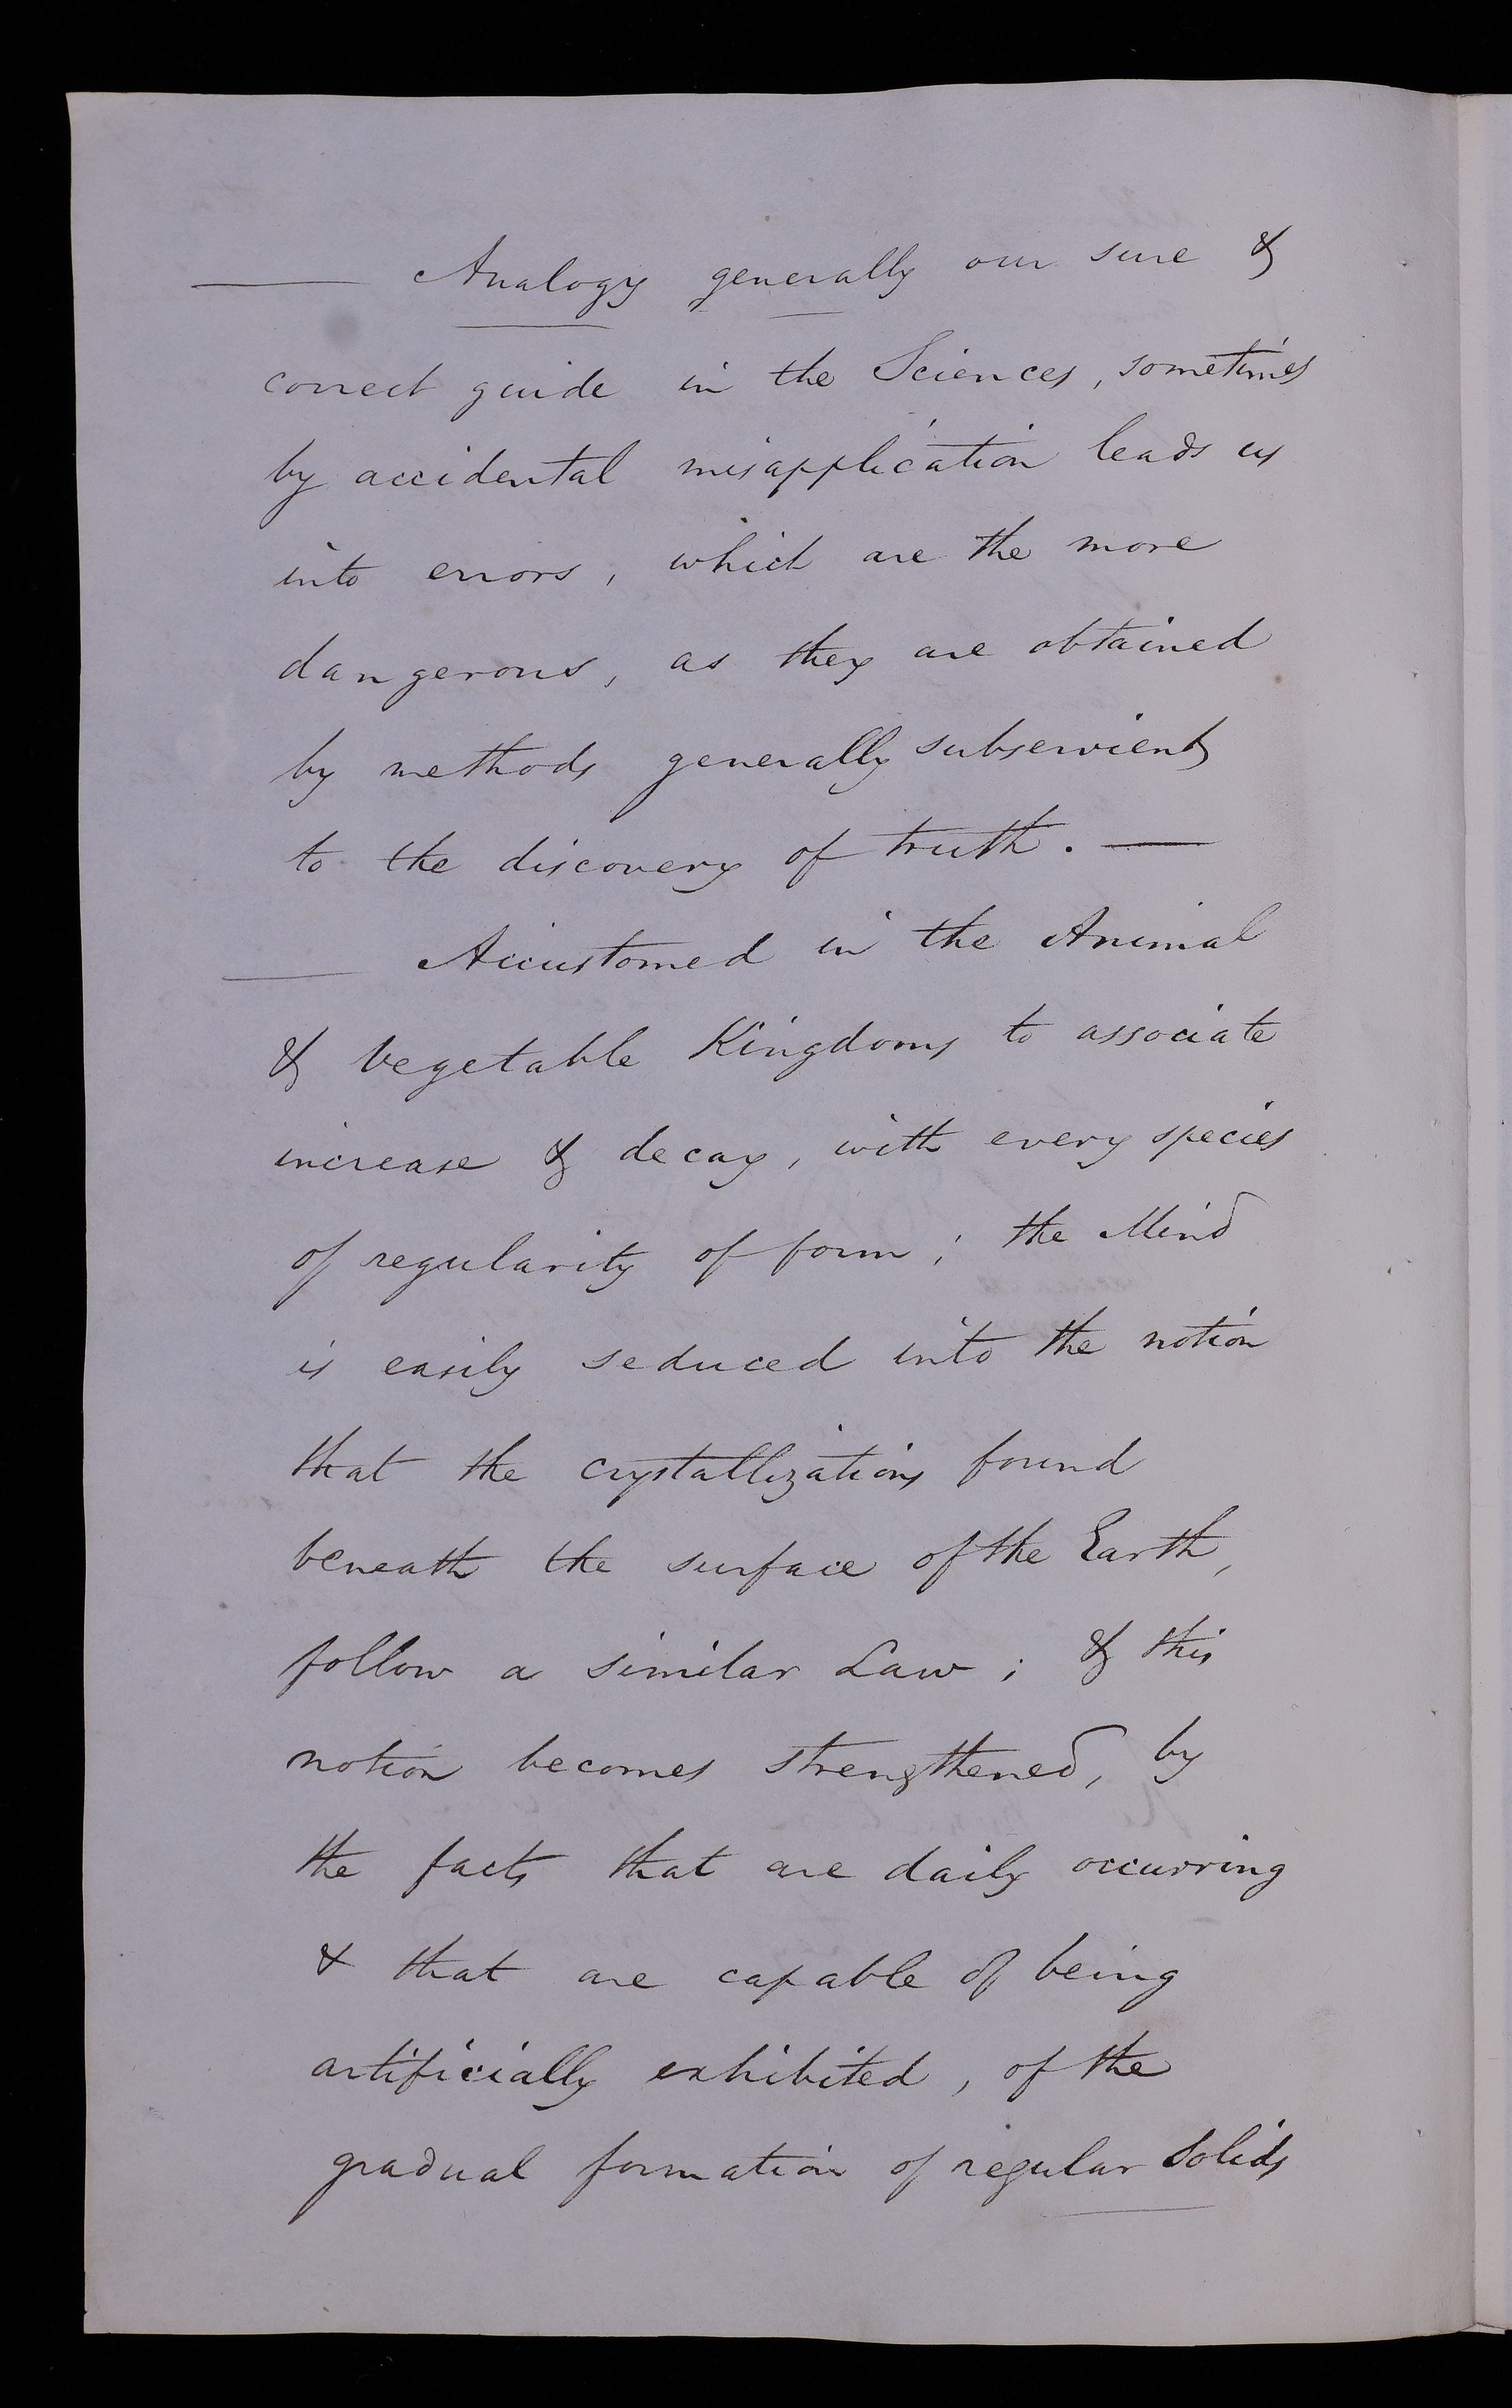 — Analogy generally our sure &
correct guide in the Sciences, sometimes
by accidental misapplication leads us
into errors, which are the more
dangerous, as they are obtained
by methods generally subservient
to the discovery of truth. —
— Accustomed in the Animal
& Vegetable Kingdoms to associate
increase & decay, with every species
of regularity of form; the Mind
is easily seduced into the notion
that the crystallizations found
beneath the surface of the Earth,
follow a similar Law; & this
notion becomes strengthened, by
the facts that are daily occurring
& that are capable of being
artificially exhibited, of the
gradual formation of regular Solids